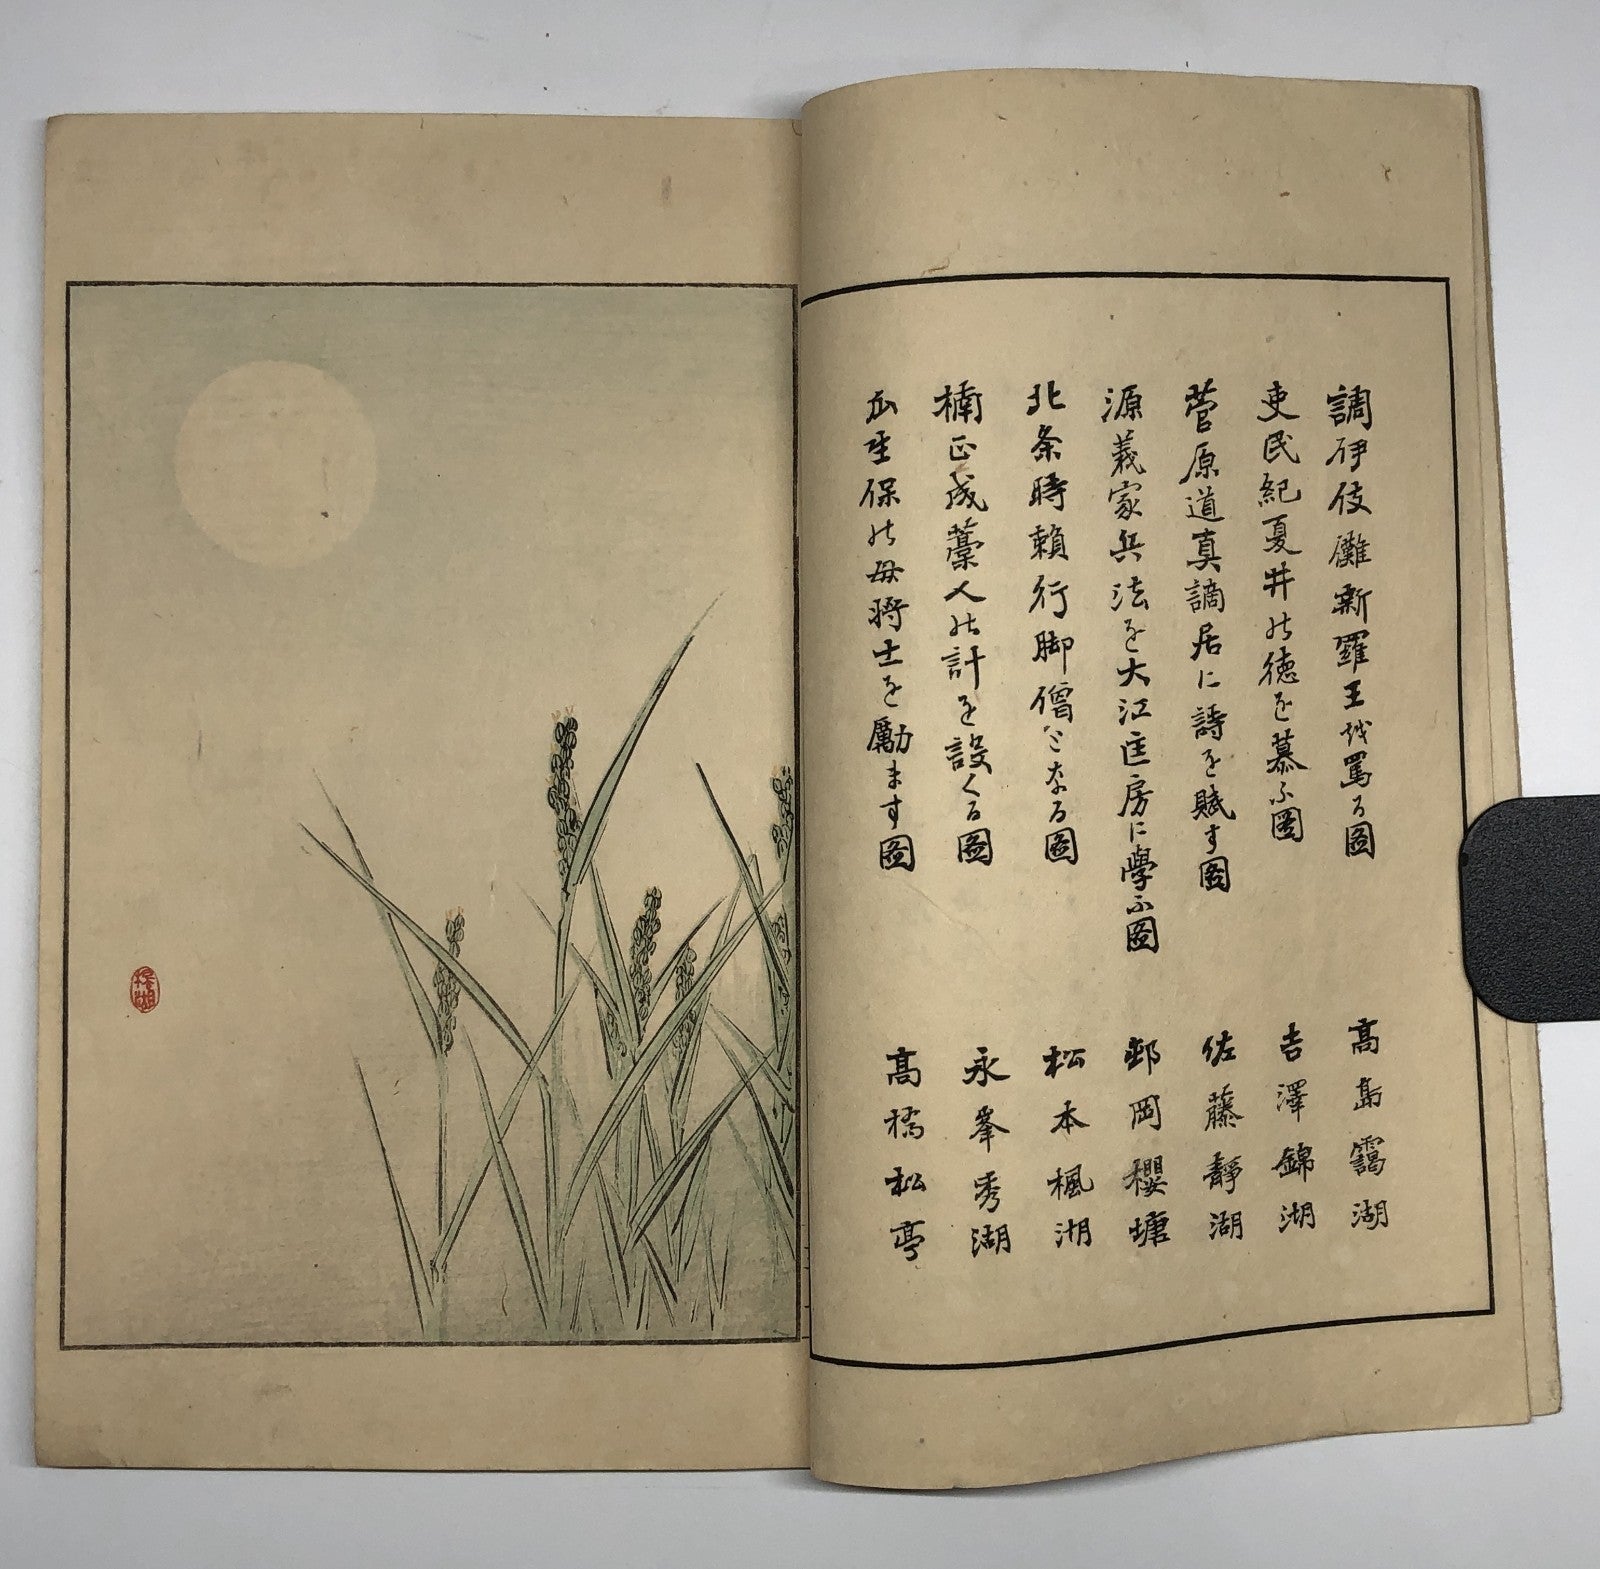 調伊伎儺新羅王越罵る圖 高島靄湖
吏民紀夏井の徳を慕ふ圖 吉澤錦湖
菅原道真謫居に詩を賦す圖 佐藤靜湖
源義家兵法を大江匡房に學ふ圖 邨岡櫻塘
北条時頼行脚僧となる圖 松本楓湖
楠正成藁人の計を設くる圖 永峯秀湖
瓜生保の母将士を勵ます圖 高橋松亭